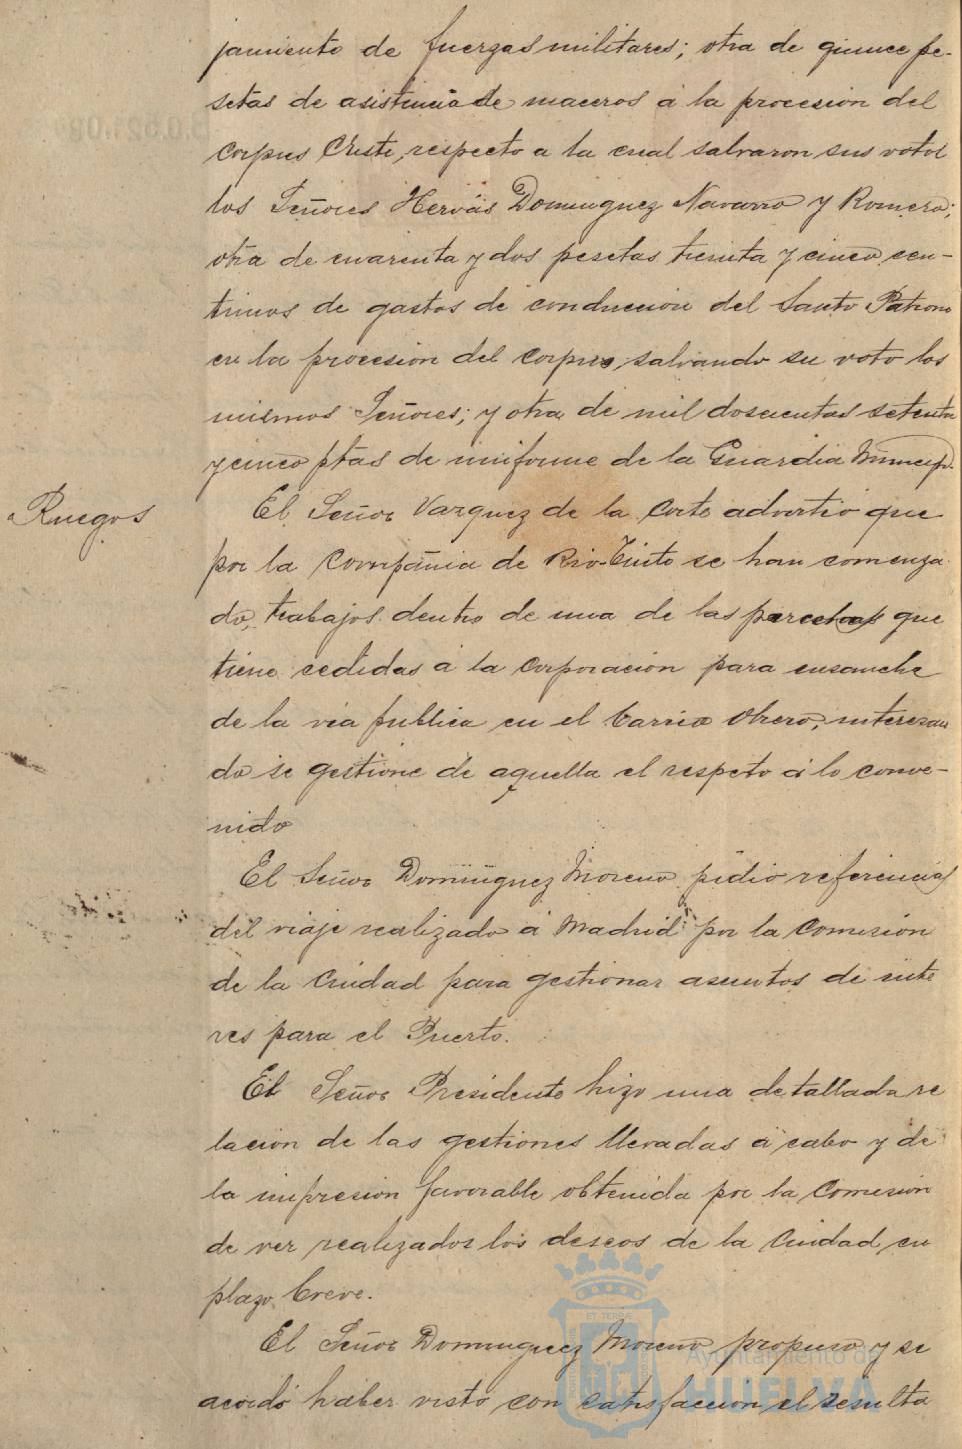 jamiento de fuerzas militares; otra de quince pe-
setas de asistencia de maceros á la procesión del
Corpus Cristi, respecto a la cual salvaron sus votos
los Señores Hervás Dominguez Navarro y Romero;
otra de cuarenta y dos pesetas treinta y cinco cen-
timos de gastos de conducción del Santo Patrono
en la procesión del Corpus, salvando su voto los
mismos Señores; y otra de mil doscientas setenta
y cinco ptas de uniforme de la Guardia Municip.
Ruegos
El Señor Vazquez de la Corte advirtió que
por la Compañia de Rio-Tinto se han comenza
do, trabajos dentro de una de las parcelas que
tiene cedidas á la Corporación para ensanche
de la via publica en el barrio Obrero, interesan
do se gestione de aquella el respeto á lo conve-
nido
El Señor Dominguez Moreno pidió referencias
del viaje realizado á Madrid por la Comisión
de la Ciudad para gestionar asuntos de inte
res para el Puerto.
El Señor Presidente hizo una detallada re
lación de las gestiones llevadas á cabo y de
la impresion favorable obtenida por la Comision
de ver realizados los deseos de la Ciudad, en
plazo breve.
El Señor Dominguez Moreno propuso y se
acordó haber visto con satisfacción el resulta
Ayuntamiento de
HUELVA